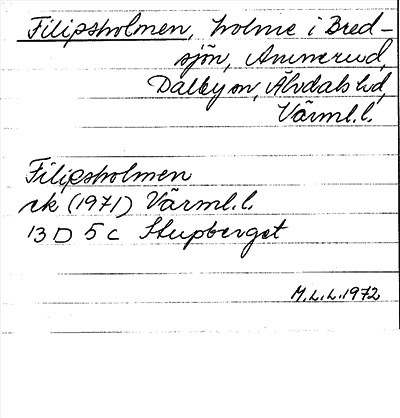 Filipsholmen, holme i Bred-
sjön, Ammerud,
Dalby sn, Älvdals hd,
Värml.l.
Filipsholmen
ek (1971) Värml.l.
13D 5c Stupberget
M.L.L. 1972